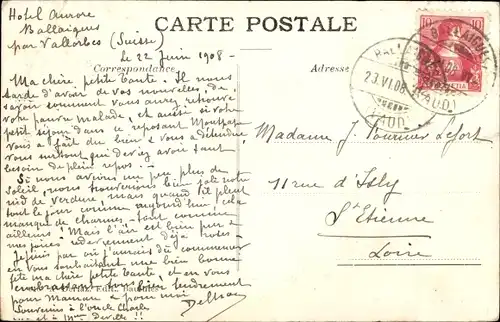 Hotel Aurore
Ballaigues
par Vallorbes (Suisse)
le 22 Juin 1908 -
CARTE POSTALE
Correspondance
Adresse
Ma chère petite tante. Il nous
tarde d'avoir de vos nouvelles, de
savoir comment vous avez retrouvé
votre pauvre malade, et aussi si votre
petit séjour dans ce reposant
vous a fait du bien & vous a détendue
vous surtout qui deviez avoir tant
besoin de plein repos :-
Si nous avions un peu plus de
soleil, nous trouverions bien joli notre
nid de verdure, mais quand il pleut
tout le jour comme aujourd'hui cela
manque de charmes - tout comme
ailleurs ! Mais l'air est bien pur &
mes joies redeviennent déjà roses -
Je finis par où j'aurais dû commencer
en vous souhaitant une bien bonne
fête ma chère petite tante, et en vous
embrassant bien tendrement
pour Maman & pour moi
Souvenirs à l'oncle Charles
et à Mme Deville !!
10
HELVETIA
BALLAIGUES
23.VI.08
(VAUD)
Madame J. Fournier Lefort
11 rue d'Isly
St Etienne
Loire